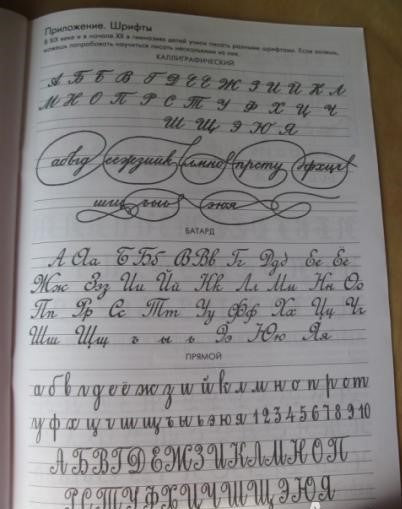 Приложение. Шрифты
В XIX веке и в начале XX в гимназиях детей учили писать разными шрифтами. Если хочешь,
можешь попробовать научиться писать несколькими из них.
КАЛЛИГРАФИЧЕСКИЙ
А Б Б В Г Д Е Ё Ж З И Й К Л
М Н О П Р С Т У Ф Х Ц Ч
Ш Щ Э Ю Я
абвгд еёжзийк лмно прсту фхцч
шщ ъыь эюя
БАТАРД
А Аа Б Бб В Вв Гг Ддд Ее Ёё
Жж Ззз Ии Йй Кк Лл Мм Нн Оо
Пп Рр Сс Тт Уу Фф Хх Цц Чч
Шш Щщ ъ ы ь Ээ Юю Яя
ПРЯМОЙ
а б в г д е ё ж з и й к л м н о п р с т
у ф х ц ч ш щ ъ ы ь э ю я 1 2 3 4 5 6 7 8 9 10
А Б В Г Д Е Ж З И К Л М Н О П
Р С Т У Ф Х Ц Ч Ш Щ Э Ю Я